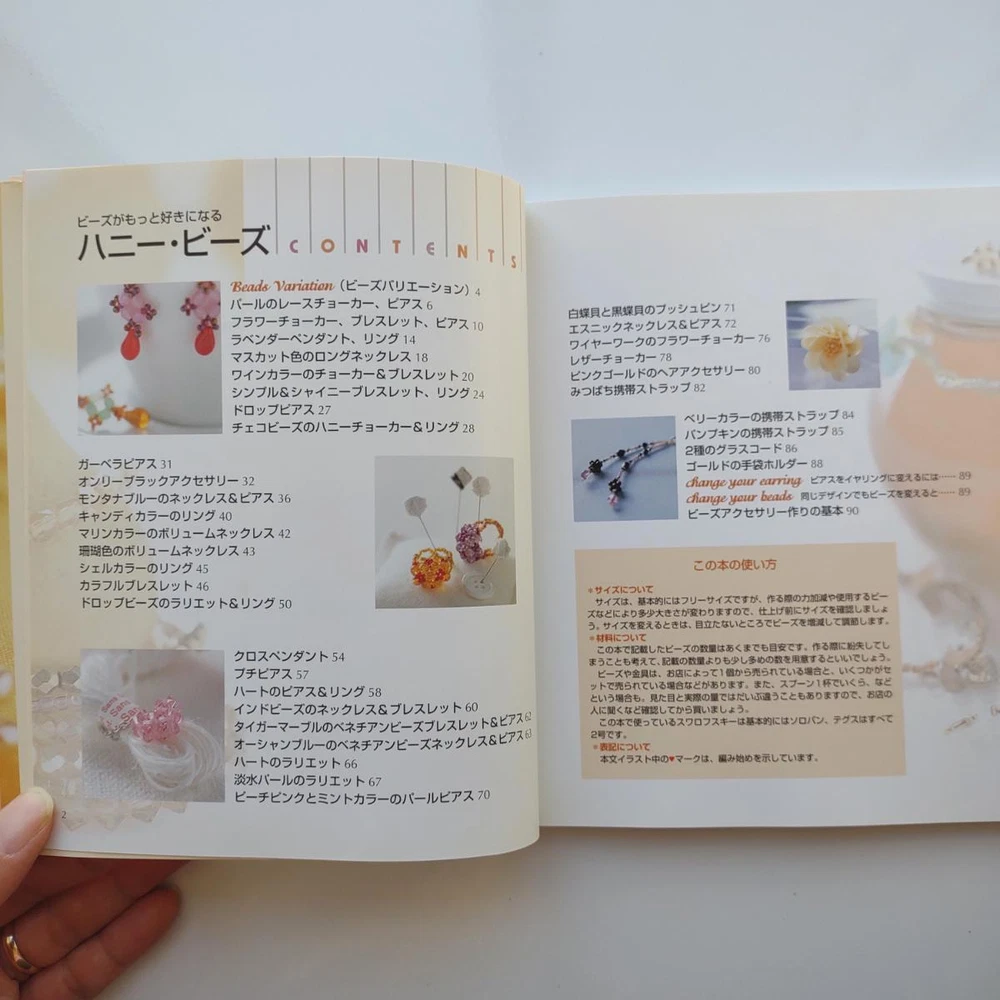 ビーズがもっと好きになる
ハニー・ビーズ CONTENTS
Beads Variation（ビーズバリエーション）4
パールのレースチョーカー、ピアス 6
フラワーチョーカー、ブレスレット、ピアス 10
ラベンダーペンダント、リング 14
マスカット色のロングネックレス 18
ワインカラーのチョーカー＆ブレスレット 20
シンプル＆シャイニーブレスレット、リング 24
ドロップピアス 27
チェコビーズのハニーチョーカー＆リング 28
ガーベラピアス 31
オンリーブラックアクセサリー 32
モンタナブルーのネックレス＆ピアス 36
キャンディカラーのリング 40
マリンカラーのボリュームネックレス 42
珊瑚色のボリュームネックレス 43
シェルカラーのリング 45
カラフルブレスレット 46
ドロップビーズのラリエット＆リング 50
クロスペンダント 54
プチピアス 57
ハートのピアス＆リング 58
インドビーズのネックレス＆ブレスレット 60
タイガーマーブルのベネチアンビーズブレスレット＆ピアス 62
オーシャンブルーのベネチアンビーズネックレス＆ピアス 63
ハートのラリエット 66
淡水パールのラリエット 67
ピーチピンクとミントカラーのパールピアス 70
2
白蝶貝と黒蝶貝のプッシュピン 71
エスニックネックレス＆ピアス 72
ワイヤーワークのフラワーチョーカー 76
レザーチョーカー 78
ピンクゴールドのヘアアクセサリー 80
みつばち携帯ストラップ 82
ベリーカラーの携帯ストラップ 84
パンプキンの携帯ストラップ 85
2種のグラスコード 86
ゴールドの手袋ホルダー 88
change your earring ピアスをイヤリングに変えるには…… 89
change your beads 同じデザインでもビーズを変えると…… 89
ビーズアクセサリー作りの基本 90
この本の使い方
●サイズについて
サイズは、基本的にはフリーサイズですが、作る際の力加減や使用するビー
ズなどにより多少大きさが変わりますので、仕上げ前にサイズを確認しましょ
う。サイズを変えるときは、目立たないところでビーズを増減して調節します。
●材料について
この本で記載したビーズの数量はあくまでも目安です。作る際に紛失してし
まうことも考えて、記載の数量よりも少し多めの数を用意するといいでしょう。
ビーズや金具は、お店によって1個から売られている場合と、いくつかがセ
ットで売られている場合などがあります。また、スプーン1杯でいくら、など
という場合も、見た目と実際の量ではだいぶ違うこともありますので、お店の
人に聞くなど確認してから買いましょう。
この本で使っているスワロフスキーは基本的にはソロバン、テグスはすべて
2号です。
●表記について
本文イラスト中の♥マークは、編み始めを示しています。